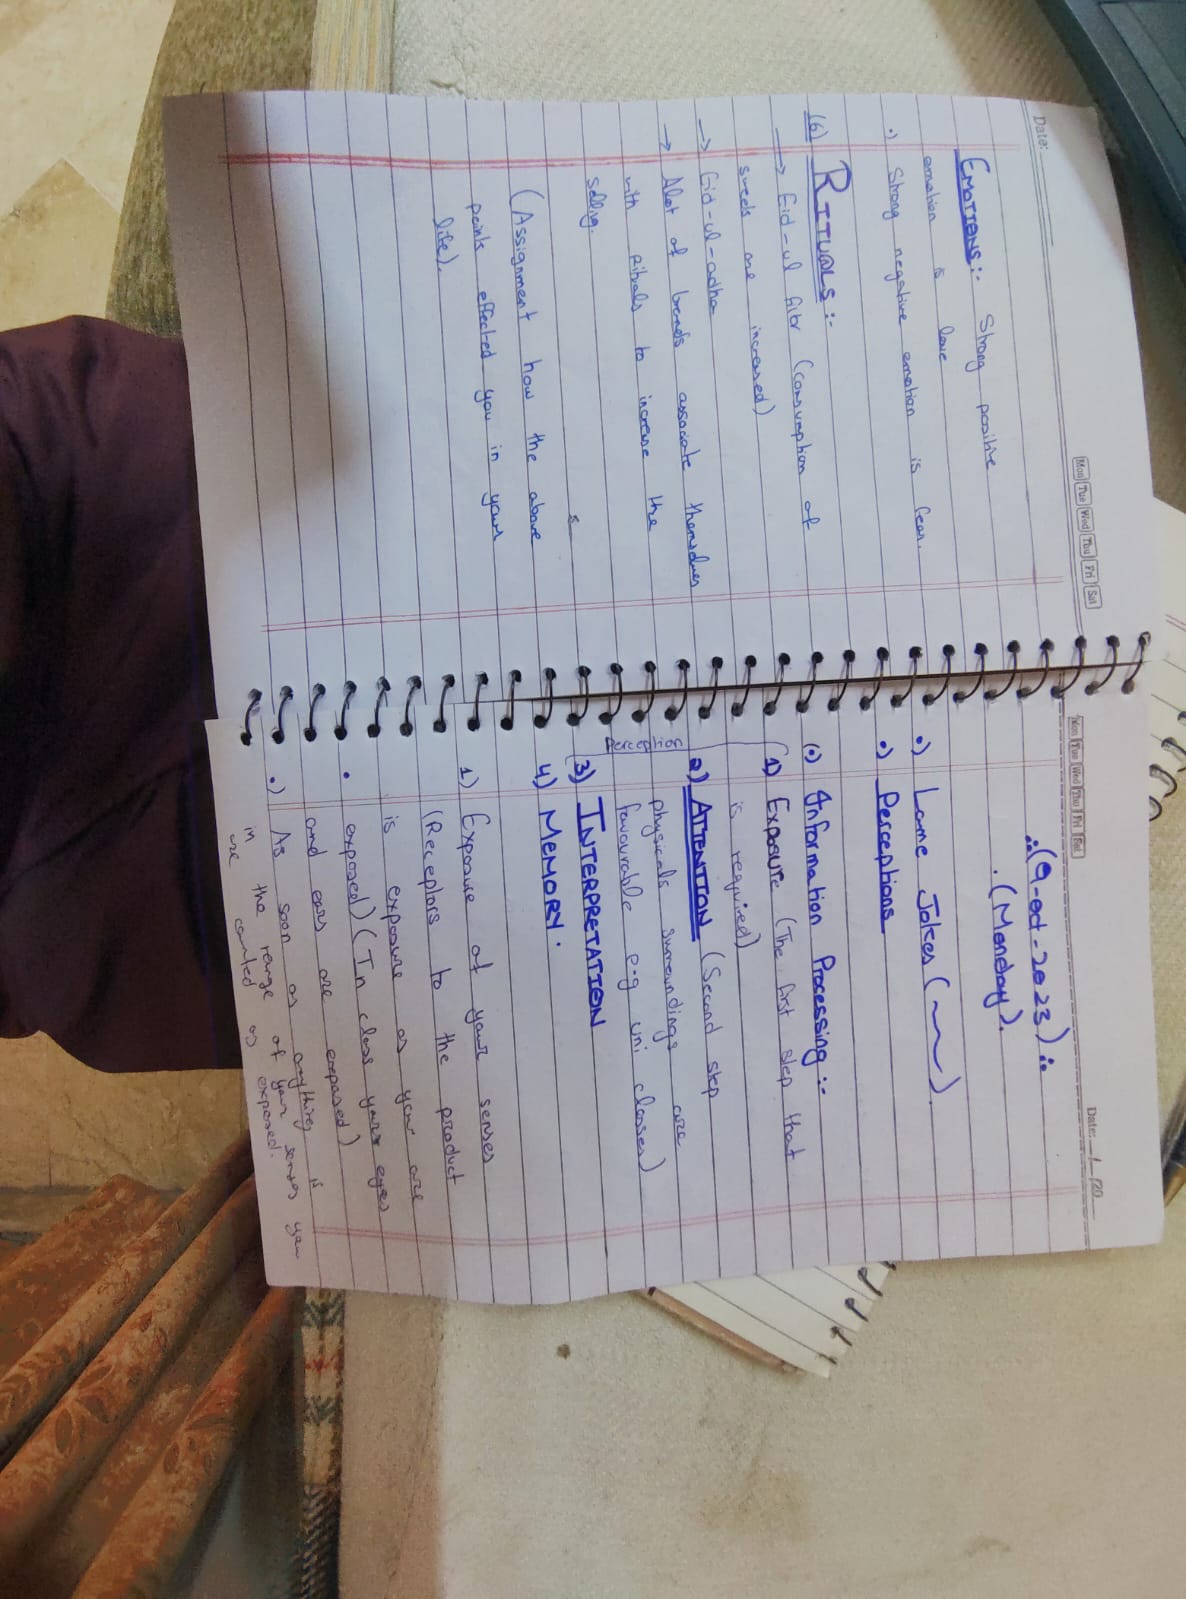 Mon Tue Wed Thu Fri Sat
Date:
EMOTIONS:- Strong positive
emotion is love
.) Strong negative emotion is fear.
(6) RITUALS :-
→ Eid-ul fitr (consumption of
sweets are increased)
→ Eid-ul-adha
→ Alot of brands associate themselves
with Rituals to increase the
selling.
(Assignment how the above
points effected you in your
life).
Mon Tue Wed Thu Fri Sat
Date: / /20
(9-oct-2023)
.(Monday).
.) Lame Jokes ( ).
.) Perceptions
(.) Information Processing :-
1) Exposure (The first step that
is required)
2) ATTENTION (Second step
physicals surroundings are
favourable e.g uni classes)
3) INTERPRETATION
4) MEMORY.
Perception
1) Exposure of your senses
(Receptors to the product
is exposure as your are
. exposed) (In class your eyes
and ears are exposed)
.) As soon as anything is
in the range of your senses you
are counted as exposed.